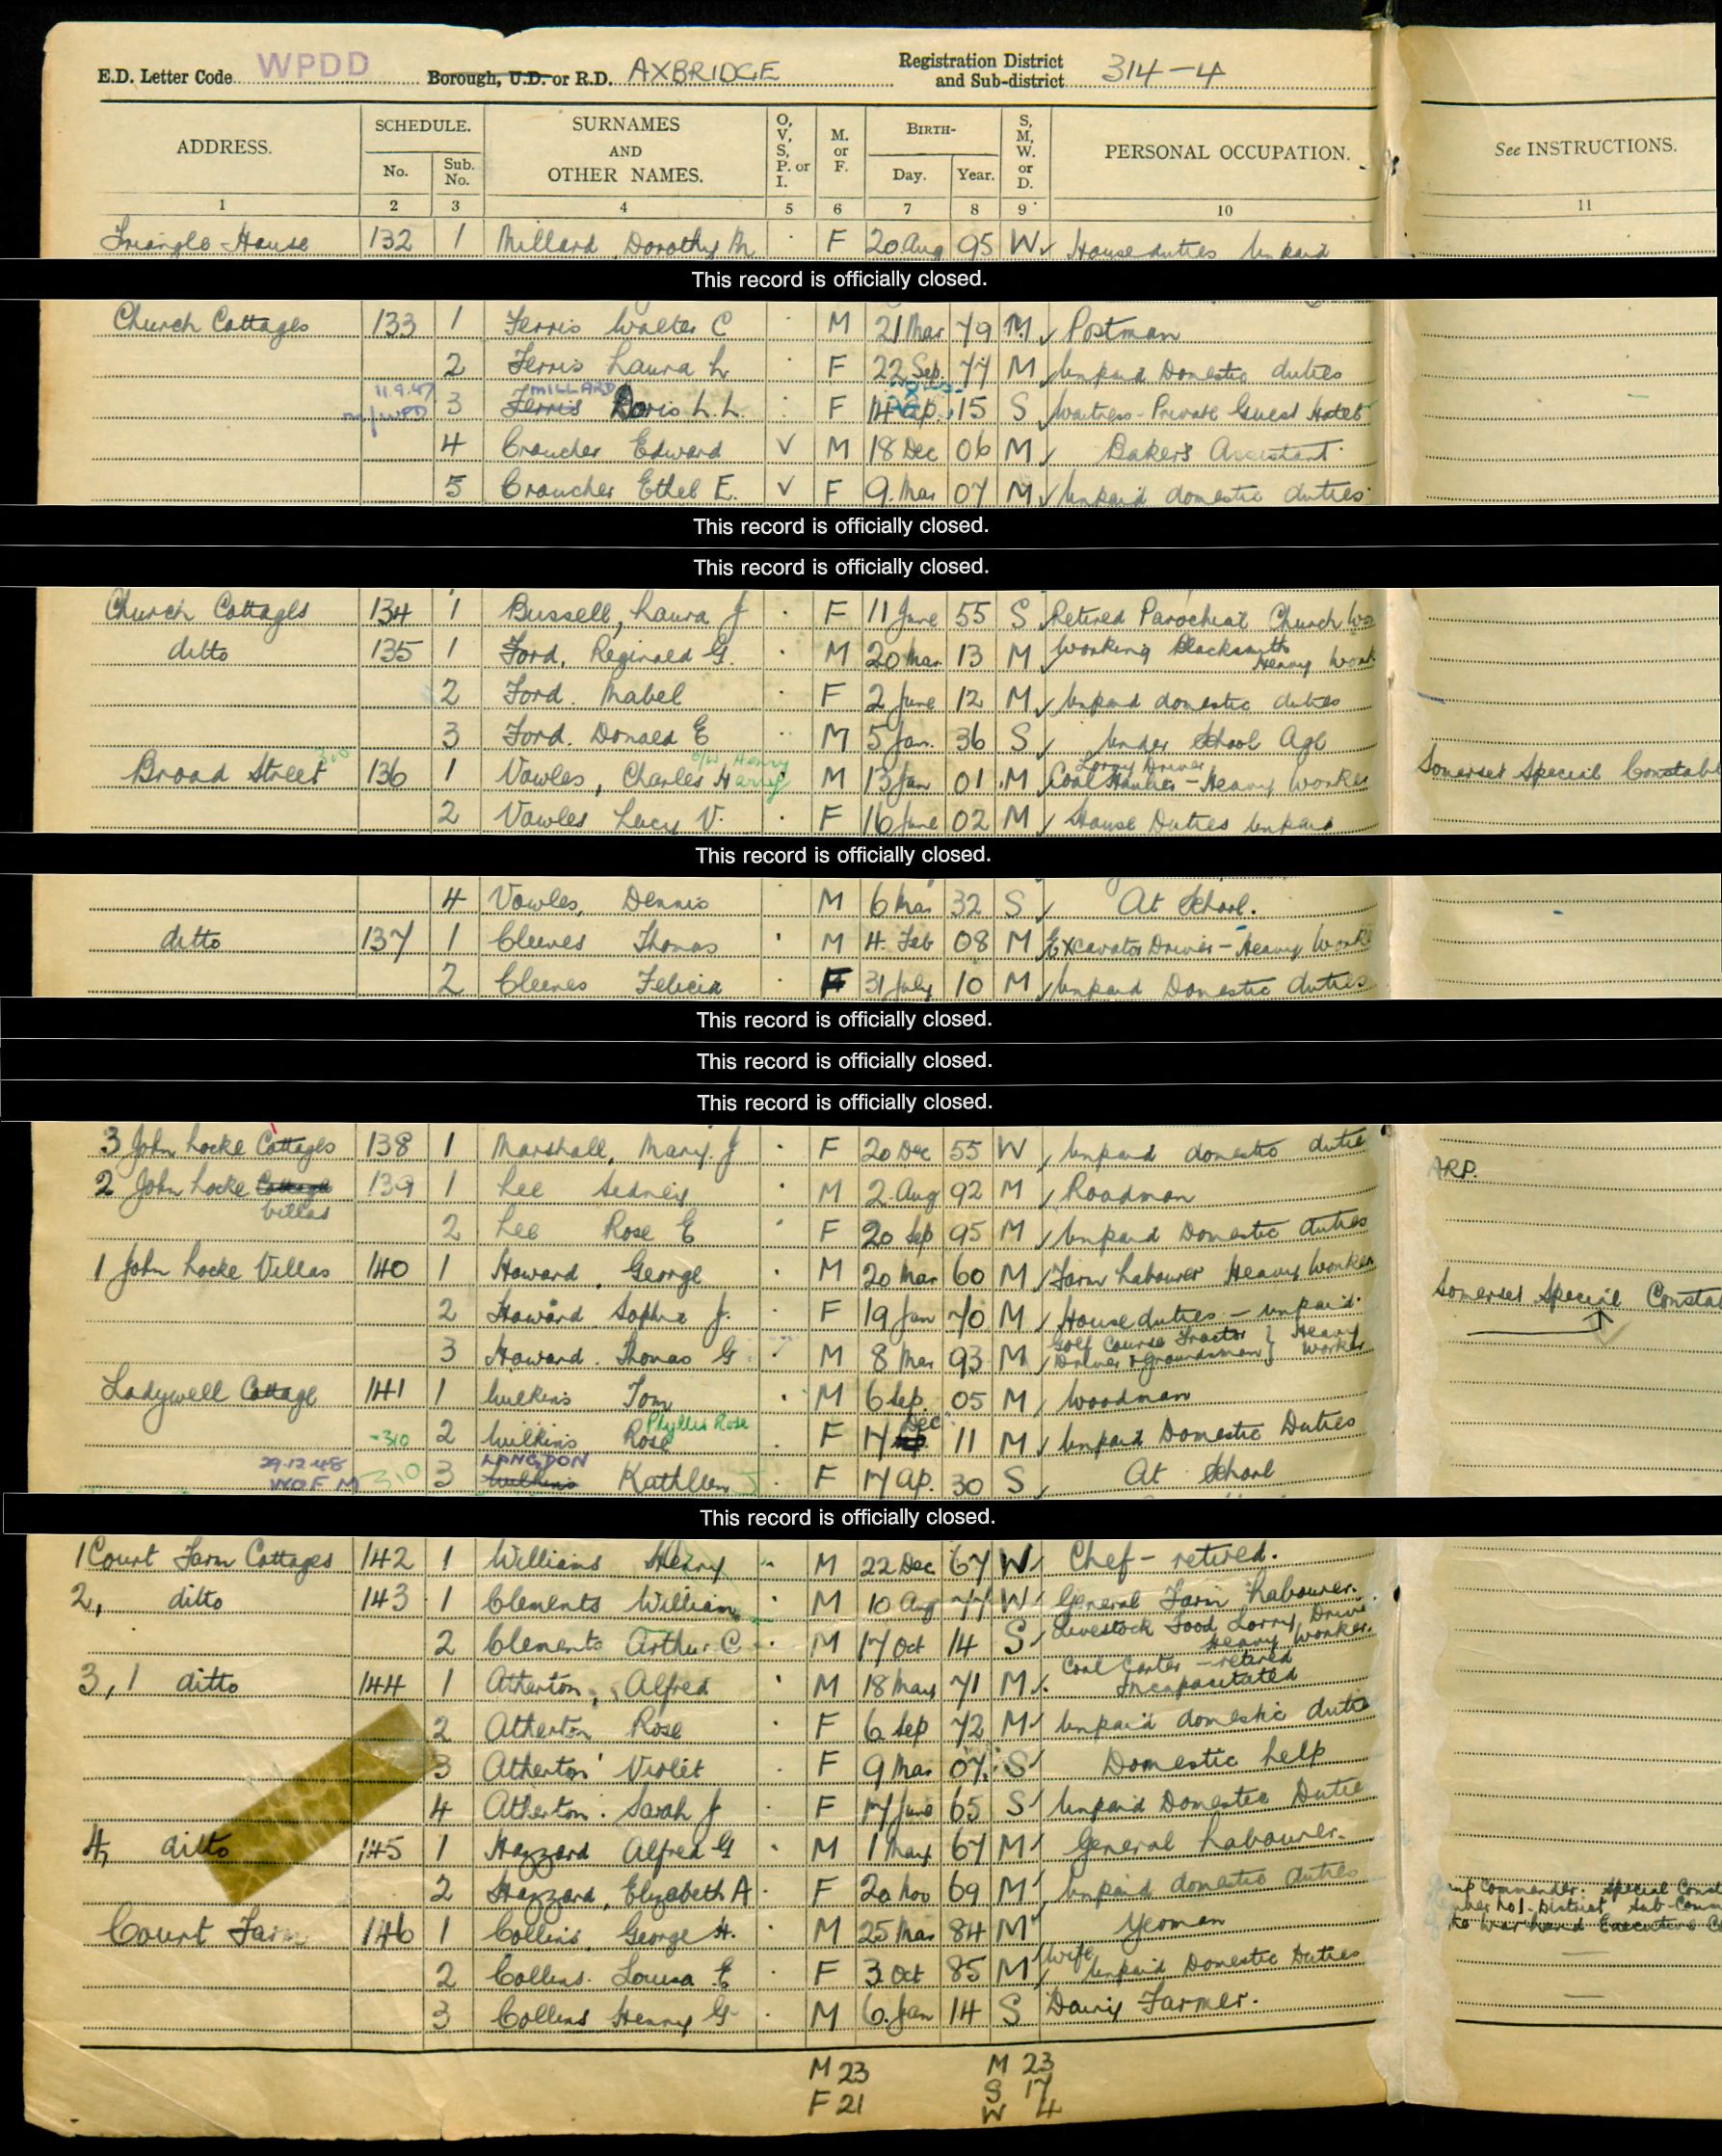 E.D. Letter Code WPDD Borough, U.D. or R.D. AXBRIDGE Registration District and Sub-district 314-4
ADDRESS. SCHEDULE. No. Sub. No. SURNAMES AND OTHER NAMES. O, V, S, P. or I. M. or F. BIRTH- Day. Year. S, M, W. or D. PERSONAL OCCUPATION. See INSTRUCTIONS.
1 2 3 4 5 6 7 8 9 10 11
Triangle House 132 1 Millard, Dorothy M. F 20 Aug 95 W House duties Unpaid
This record is officially closed.
Church Cottages 133 1 Ferris Walter C M 21 Mar 79 M Postman
2 Ferris Laura L F 22 Sep. 77 M Unpaid Domestic duties
11.9.47 MILLARD
3 Ferris Doris L. L. F 14 15 S Waitress - Private Guest Hotel
4 Croucher Edward V M 18 Dec 06 M Bakers Assistant
5 Croucher Ethel E. V F 9. Mar 07 M Unpaid domestic duties
This record is officially closed.
This record is officially closed.
Church Cottages 134 1 Bussell, Laura J F 11 June 55 S Retired Parochial Church Wor
ditto 135 1 Ford, Reginald G. M 20 Mar 13 M Working Blacksmith Heavy Work
2 Ford. Mabel F 2 June 12 M Unpaid domestic duties
3 Ford. Donald E M 5 Jan. 36 S Under School Age
310 Henry Lorry Driver
Broad Street 136 1 Vowles, Charles Harry M 13 Jan 01 M Coal Haulier - Heavy Worker Somerset Special Constabl
2 Vowles Lucy V. F 16 June 02 M House Duties Unpaid
This record is officially closed.
4 Vowles, Dennis M 6 Mar 32 S At School.
ditto 137 1 Cleeves Thomas M 4. Feb 08 M Excavator Driver - Heavy Worke
2 Cleeves Felicia F 31 July 10 M Unpaid Domestic duties
This record is officially closed.
This record is officially closed.
This record is officially closed.
3 John Locke Cottages 138 1 Marshall, Mary. J F 20 Dec 55 W Unpaid domestic dutie
ARP.
2 John Locke Cottage Villas 139 1 Lee Sidney M 2. Aug 92 M Roadman
2 Lee Rose E F 20 Sep 95 M Unpaid Domestic duties
1 John Locke Villas 140 1 Howard, George M 20 Mar 60 M Farm Labourer Heavy Worker
Somerset Special Constab
2 Howard Sophia J. F 19 Jan 70 M House duties - unpaid.
3 Howard. Thomas G M 8 Mar 93 M Golf Course Tractor Driver & Groundsman } Heavy Worker
Ladywell Cottage 141 1 Wilkins Tom M 6 Sep. 05 M Woodman
Phyllis Rose Dec
-310 2 Wilkins Rose F 17 11 M Unpaid Domestic Duties
29.12.48 LANGDON
WOFM -310 3 Wilkins Kathleen J F 17 Ap. 30 S At School
This record is officially closed.
1 Court Farm Cottages 142 1 Williams Henry M 22 Dec 67 W Chef - retired.
2, ditto 143 1 Clements William M 10 Aug 77 W General Farm Labourer.
2 Clements Arthur C M 17 Oct 14 S Livestock Food Lorry Drive Heavy Worker.
3, 1 ditto 144 1 Atherton, Alfred M 18 May 71 M Coal Carter - retired Incapacitated
2 Atherton Rose F 6 Sep 72 M Unpaid domestic dutie
3 Atherton Violet F 9 Mar 07 S Domestic help
4 Atherton. Sarah J F 17 June 65 S Unpaid Domestic Dutie
4, ditto 145 1 Hazzard Alfred G M 1 May 67 M General Labourer.
2 Hazzard, Elizabeth A F 20 Nov 69 M Unpaid domestic duties
Commander: Special Const
No 1. District Sub-Comm
to War Executive C
Court Farm 146 1 Collins, George H. M 25 Mar 84 M Yeoman
2 Collins. Louisa E F 3 Oct 85 M Wife Unpaid Domestic Duties
3 Collins Henry G M 6. Jan 14 S Dairy Farmer.
M 23 M 23
F 21 S 17
W 4